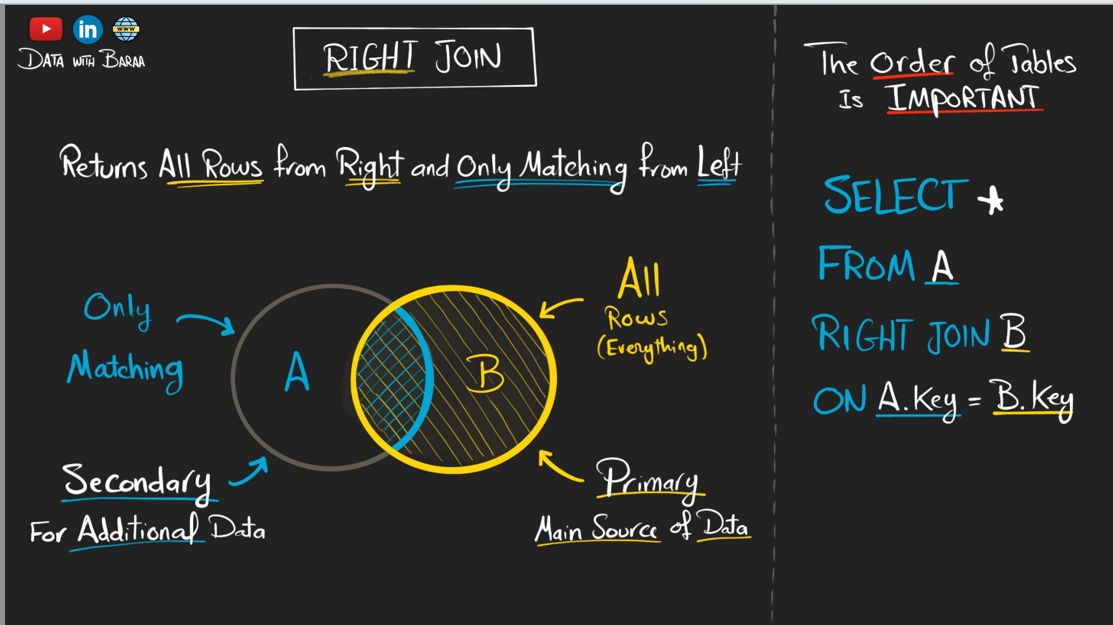 WWW
in
DATA WITH BARAA
RIGHT JOIN
Returns All Rows from Right and Only Matching from Left
Only
Matching
A
B
All
Rows
(Everything)
Secondary
For Additional Data
Primary
Main Source of Data
The Order of Tables
Is IMPORTANT
SELECT *
FROM A
RIGHT JOIN B
ON A.Key = B.Key